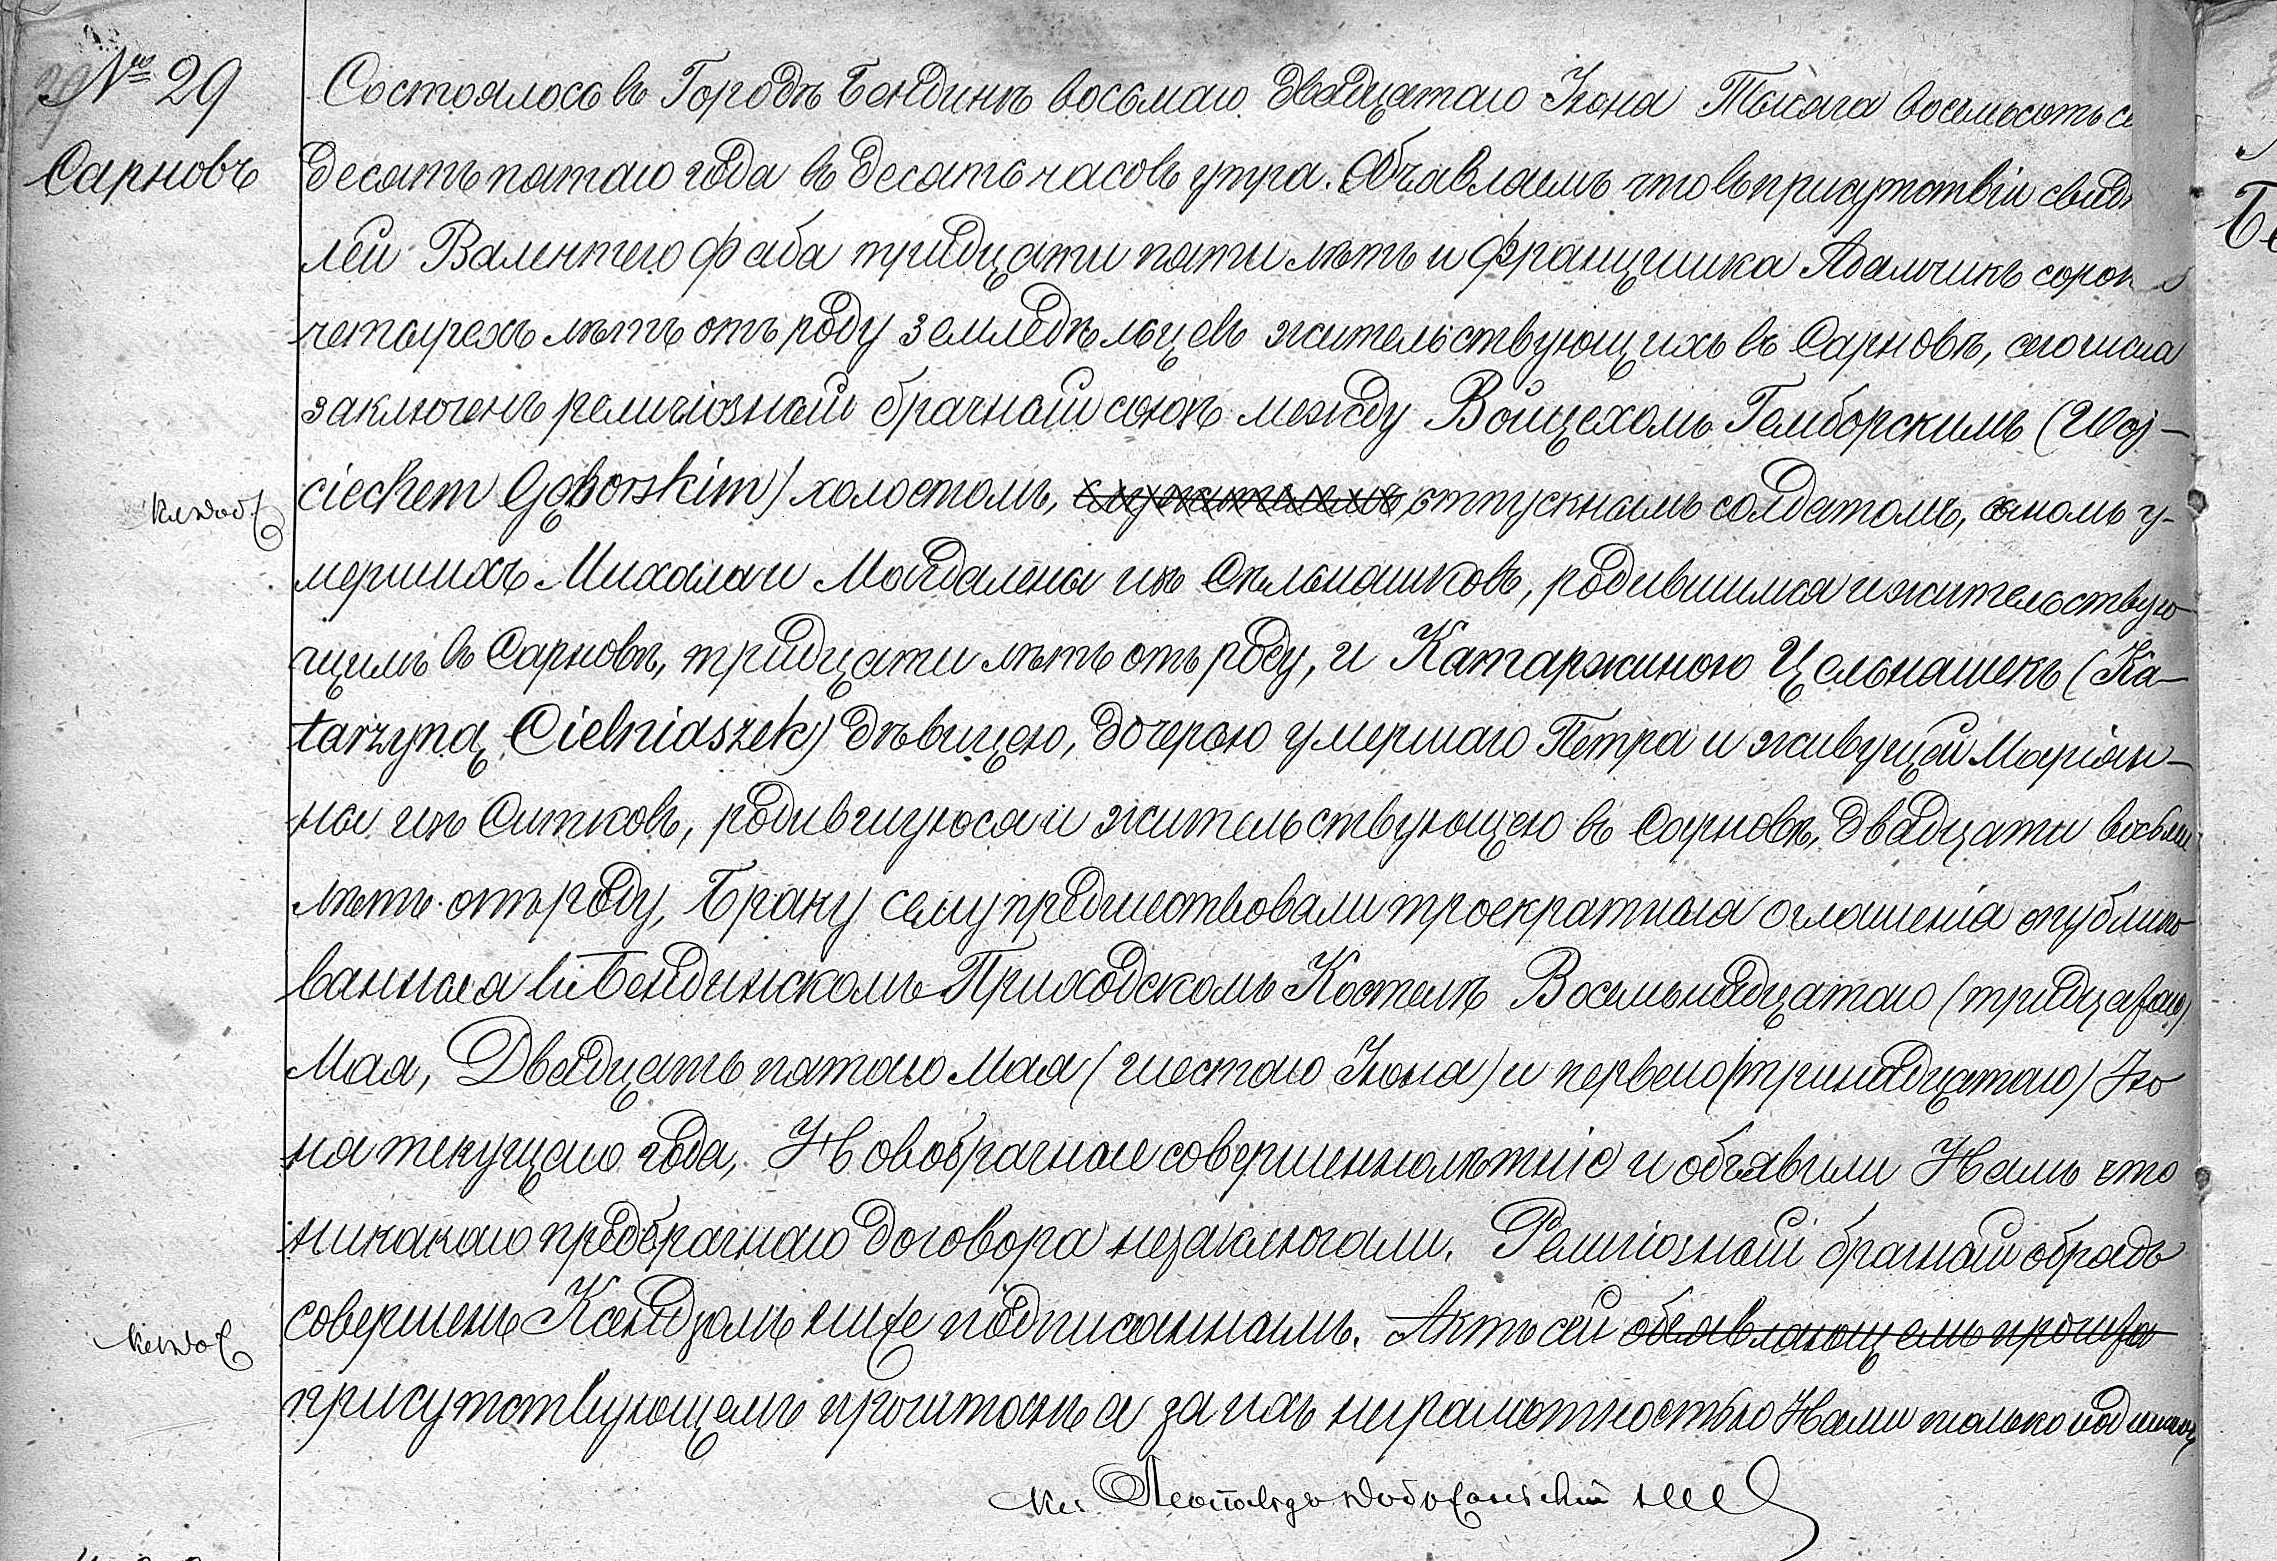 № 29
Сарновъ
Состоялось въ Городѣ Бендинѣ восьмаго двадцатаго Іюня Тысяча восемьсотъ се
десятъ пятаго года въ десять часовъ утра. Объявляемъ что въ присутствіи свидѣ
лей Валентего Фаба тридцати пяти лѣтъ и Францишка Адамчикъ сорок
четырехъ лѣтъ отъ роду земледѣльцевъ жительствующихъ въ Сарновѣ, сего числа
заключенъ религіозный брачный союзъ между Войцехомъ Гемборскимъ (Woj-
ciechem Gęborskim) холостомъ, отпускнымъ солдатомъ, сыномъ у-
мершихъ Михала и Магдалены изъ Сѣльнашковъ, родившимся и жительствую
щимъ въ Сарновѣ, тридцати лѣтъ отъ роду, и Катаржиною Цельнашекъ (Ka-
tarzyną Cielniaszek) дѣвицею, дочерью умершаго Петра и живущей Маріян-
ны изъ Ситковъ, родившуюся и жительствующею въ Сарновѣ, двадцати восьми
лѣтъ отъ роду, Браку сему предшествовали троекратныя оглашенія опублико
ванныя въ Бендинскомъ Приходскомъ Костелѣ Восемьнадцатаго (тридцатаго)
Мая, Двадцать пятаго Мая (шестаго Іюня) и перваго (тринадцатаго) Ію
ня текущаго года, Новобрачные совершеннолѣтніе и объявили Намъ что
никакаго предбрачнаго договора незаключали. Религіозный брачный обрядъ
совершенъ Ксендзомъ ниже подписаннымъ. Актъ сей объявляющемъ прочита
присутствующемъ прочитанъ а за ихъ неграмотностью Нами только подписанъ
Кс. Леопольдъ